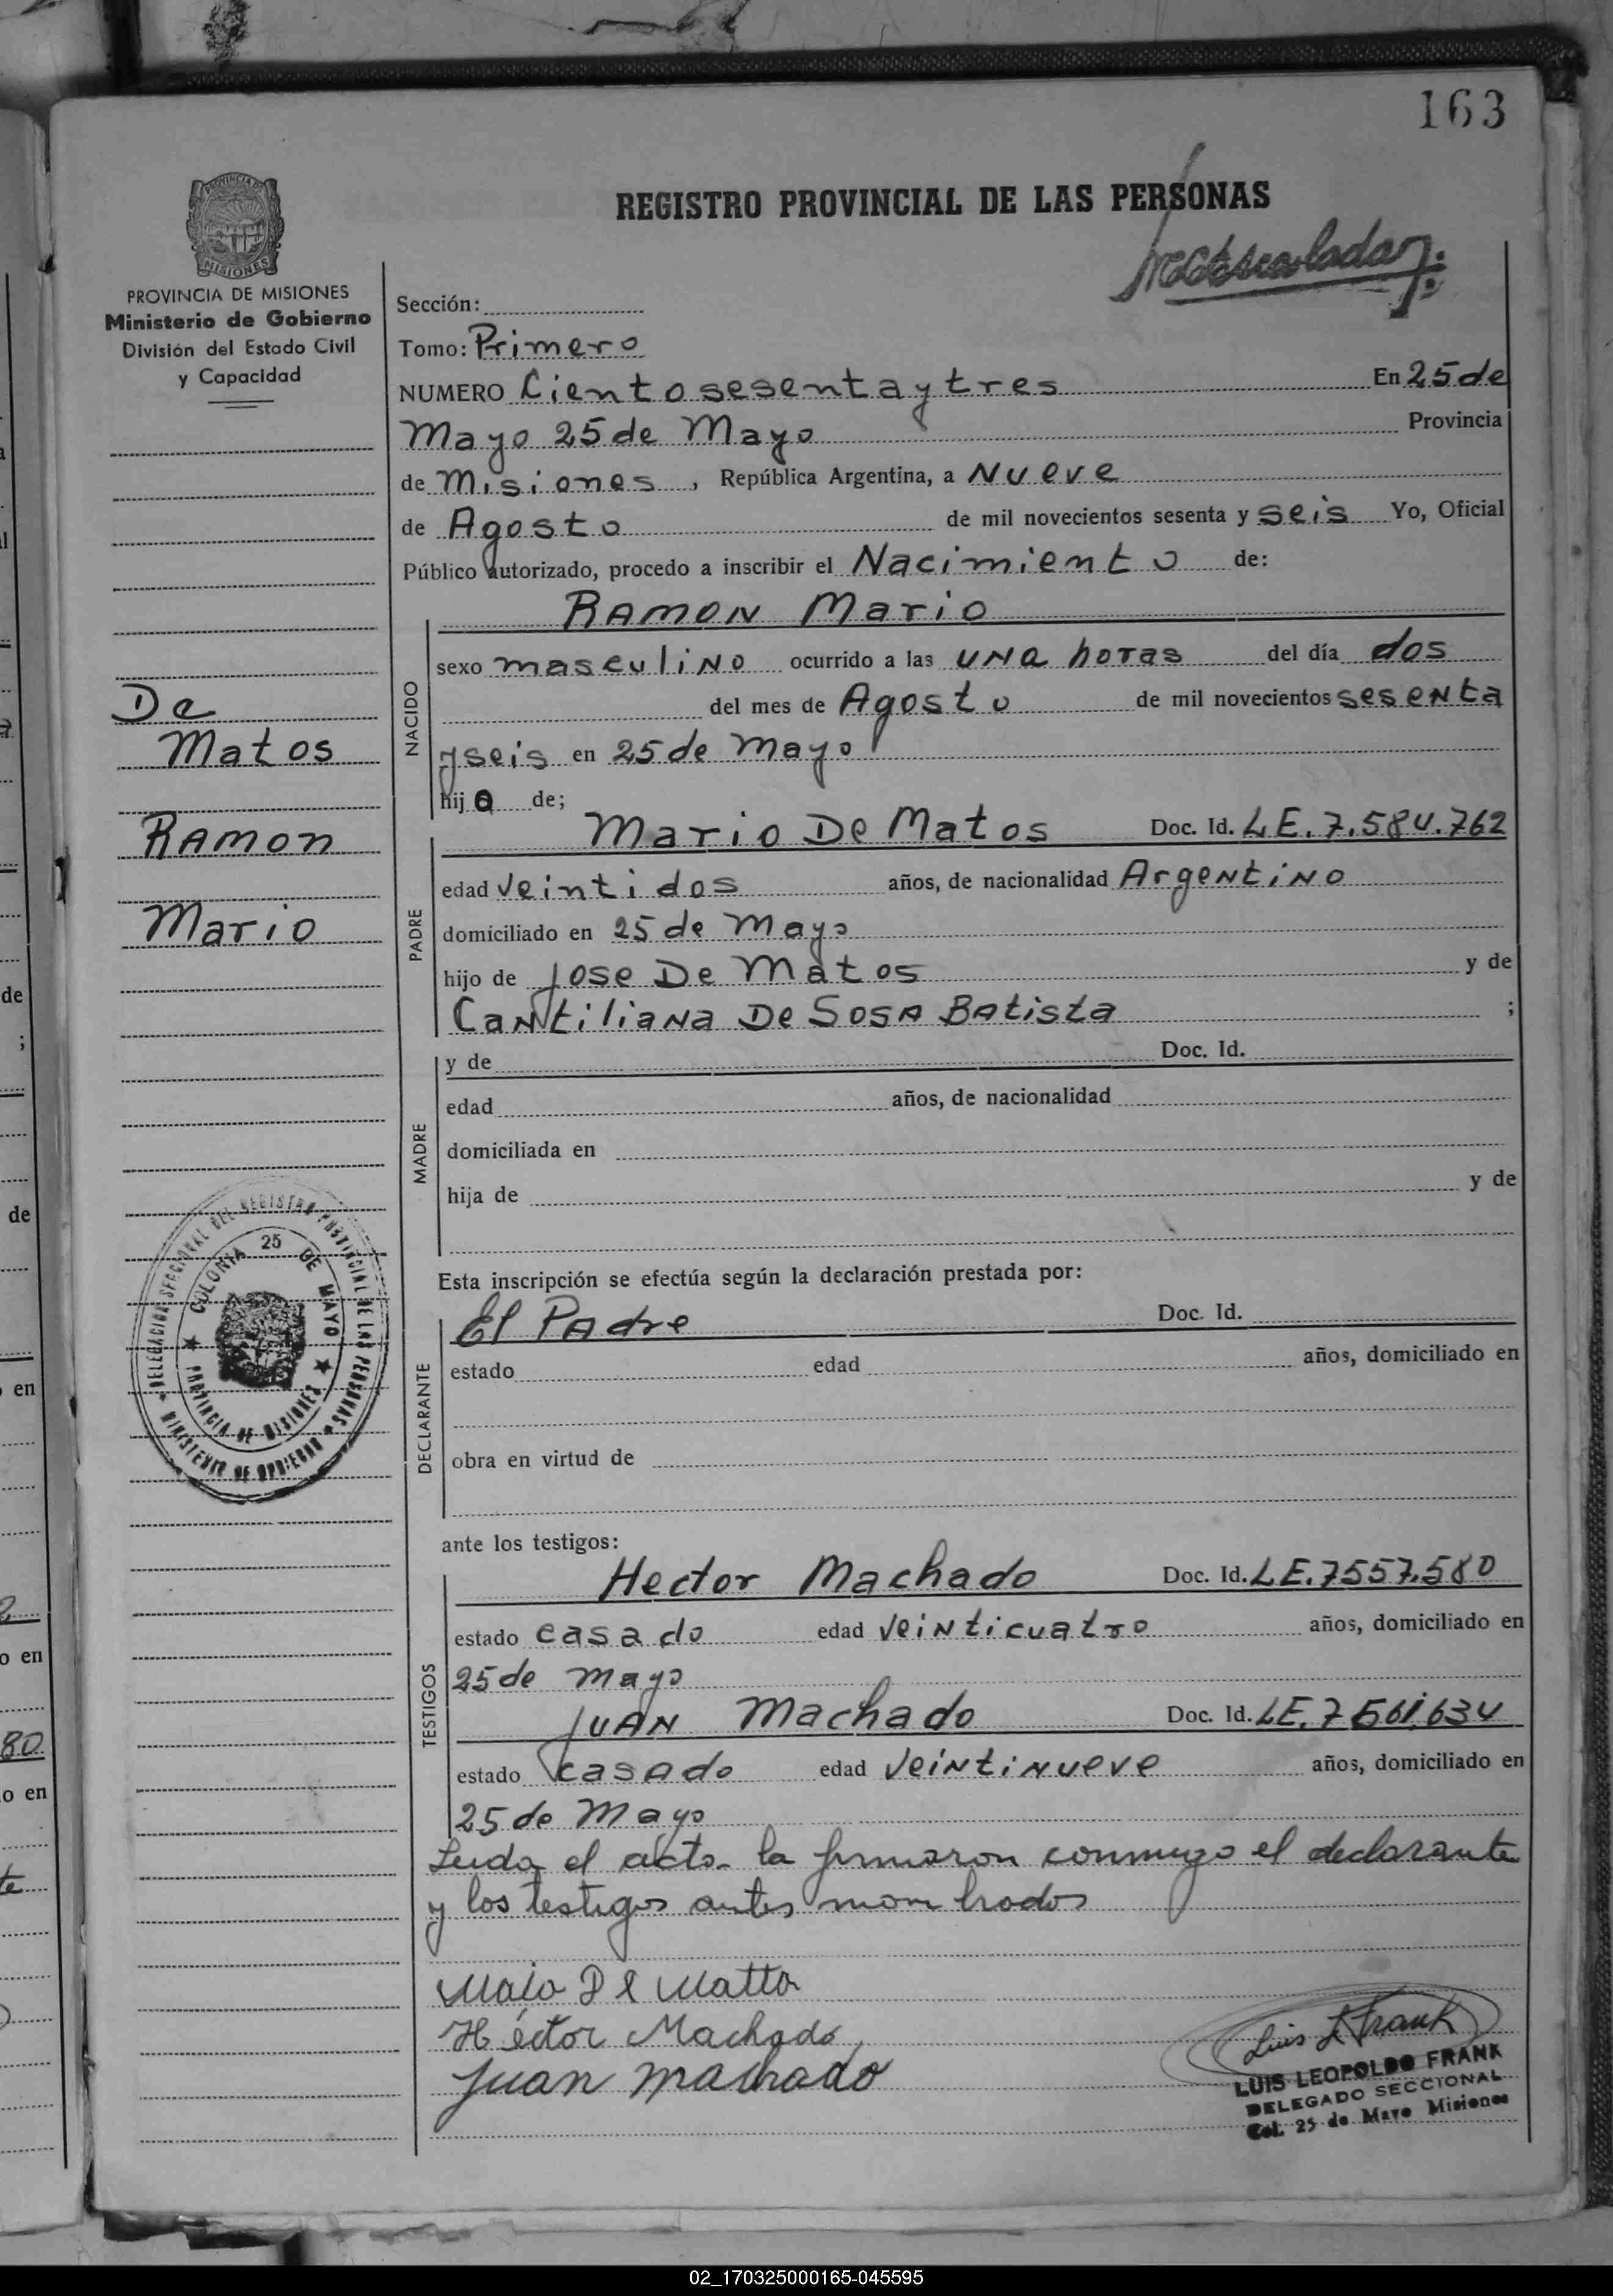 163
REGISTRO PROVINCIAL DE LAS PERSONAS
PROVINCIA DE
MISIONES
PROVINCIA DE MISIONES
Ministerio de Gobierno
División del Estado Civil
y Capacidad
De
Matos
Ramon
Mario
DELEGACION SECCIONAL DEL REGISTRO PROVINCIAL DE LAS PERSONAS
MINISTERIO DE GOBIERNO
COLONIA 25 DE MAYO
PROVINCIA DE MISIONES
Sección:
Tomo: Primero
NUMERO Ciento sesenta y tres En 25 de
Mayo 25 de Mayo Provincia
de Misiones, República Argentina, a Nueve
de Agosto de mil novecientos sesenta y seis Yo, Oficial
Público autorizado, procedo a inscribir el Nacimiento de:
NACIDO
RAMON Mario
sexo masculino ocurrido a las una horas del día dos
del mes de Agosto de mil novecientos sesenta
y seis en 25 de Mayo
hijo de;
PADRE
Mario De Matos Doc. Id. LE. 7.584.762
edad veinti dos años, de nacionalidad Argentino
domiciliado en 25 de Mayo
hijo de Jose De Matos y de
Cantiliana De Sosa Batista ;
MADRE
y de Doc. Id.
edad años, de nacionalidad
domiciliada en
hija de y de
Esta inscripción se efectúa según la declaración prestada por:
DECLARANTE
El Padre Doc. Id.
estado edad años, domiciliado en
obra en virtud de
ante los testigos:
TESTIGOS
Hector Machado Doc. Id. LE. 7557.580
estado casado edad veinticuatro años, domiciliado en
25 de Mayo
Juan Machado Doc. Id. LE. 7561.634
estado casado edad veintinueve años, domiciliado en
25 de Mayo
Leida el acta la firmaron conmigo el declarante
y los testigos antes nombrados
Héctor Machado
Juan Machado
Luis L Frank
LUIS LEOPOLDO FRANK
DELEGADO SECCIONAL
Col. 25 de Mayo Misiones
02_170325000165-045595